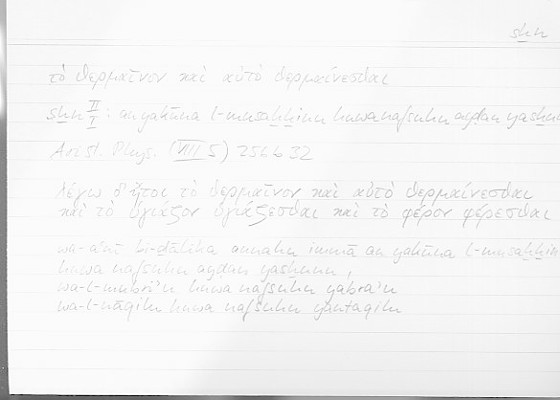 sḫn
τὸ θερμαῖνον καὶ αὐτὸ θερμαίνεσθαι
sḫn II/I : an yakūna l-musaḫḫinu huwa nafsuhu ayḍan yasḫunu
Arist. Phys. (VIII 5) 256 b 32
λέγω δ' ἤτοι τὸ θερμαῖνον καὶ αὐτὸ θερμαίνεσθαι
καὶ τὸ ὑγιάζον ὑγιάζεσθαι καὶ τὸ φέρον φέρεσθαι
wa-aʿnī bi-ḏālika annahu immā an yakūna l-musaḫḫin
huwa nafsuhu ayḍan yasḫunu,
wa-l-mubriʾu huwa nafsuhu yabraʾu
wa-l-nāqilu huwa nafsuhu yantaqilu